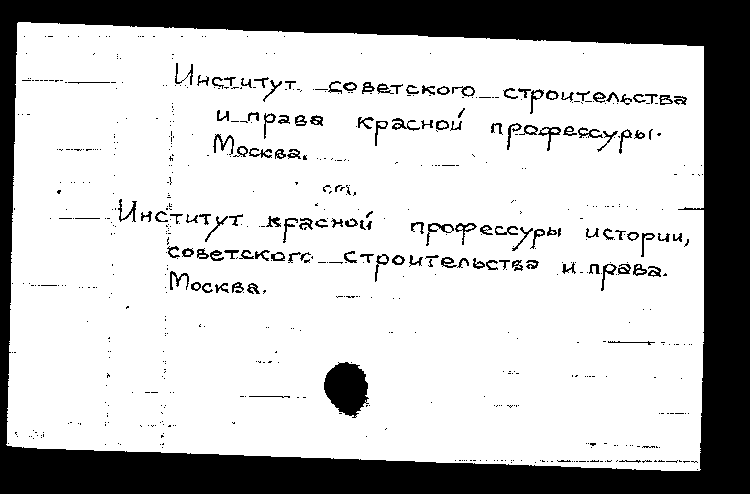 Институт советского строительства
и права красной профессуры.
Москва.
см.
Институт красной профессуры истории,
советского строительства и права.
Москва.